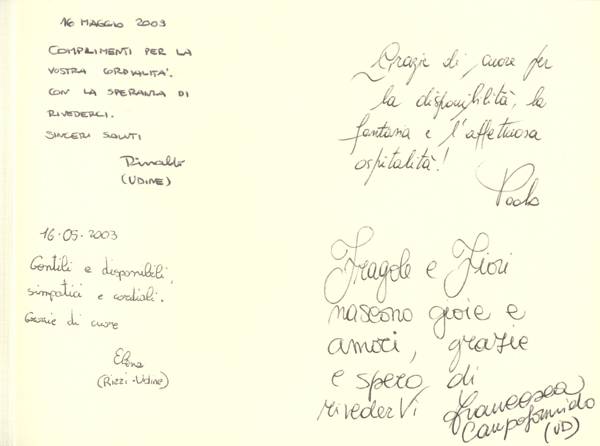 16 MAGGIO 2003
COMPLIMENTI PER LA
VOSTRA CORDIALITA'.
CON LA SPERANZA DI
RIVEDERCI.
SINCERI SALUTI
Rinaldo
(UDINE)
16.05.2003
Gentili e disponibili,
simpatici e cordiali.
Grazie di cuore
Elena
(Rizzi - Udine)
Grazie di cuore per
la disponibilità, la
fantasia e l'affettuosa
ospitalità!
Paolo
Fragole e Fiori
nascono gioie e
amori, grazie
e spero di
rivederVi
Francesca
Campoformido
(UD)